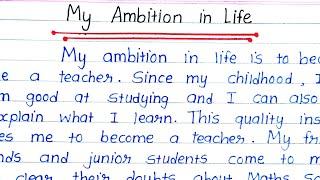 My Ambition in Life
My ambition in life is to
a teacher. Since my childhood, I
good at studying and I can also
explain what I learn. This quality
me to become a teacher. My
and junior students come to
clear their doubts about Maths